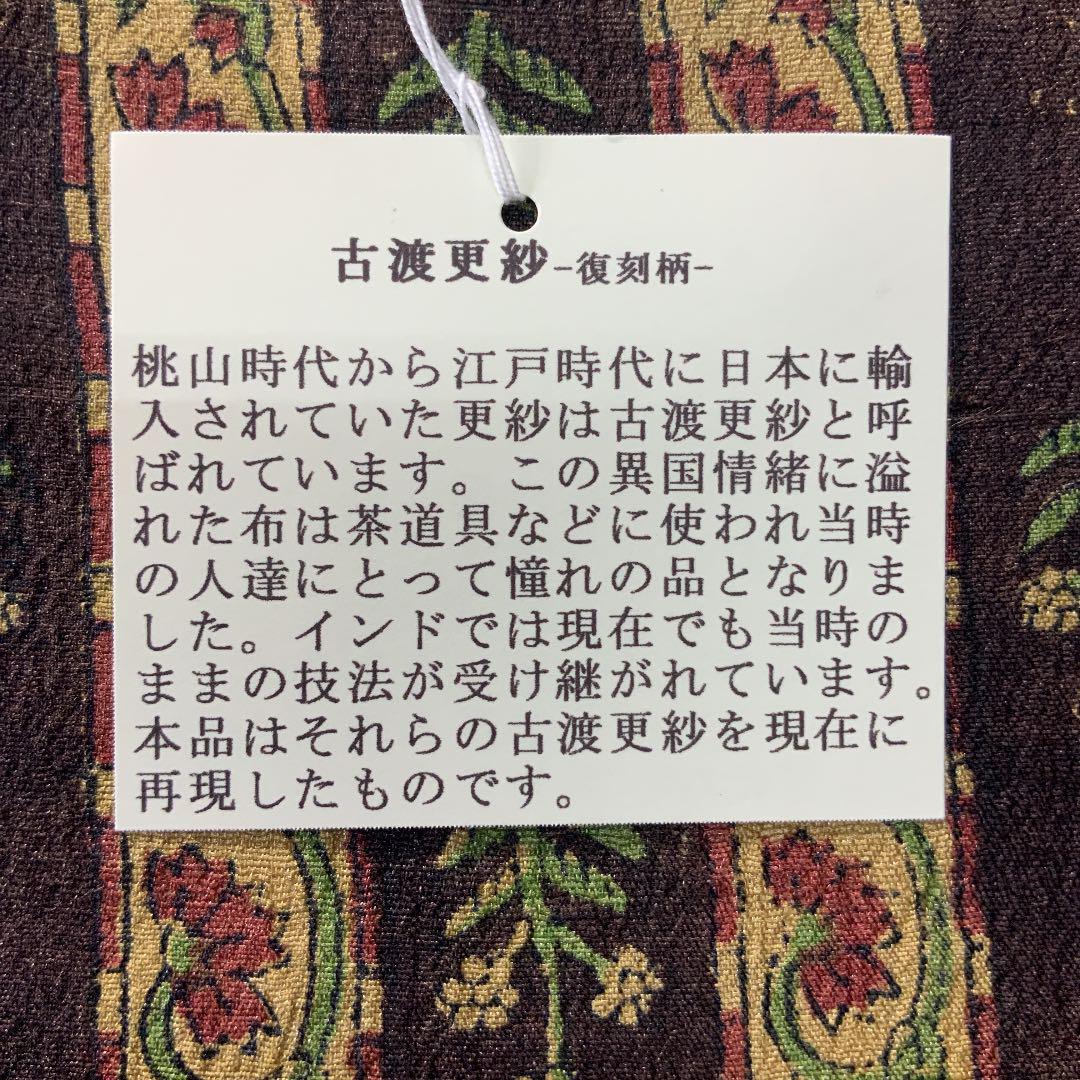 古渡更紗-復刻柄-
桃山時代から江戸時代に日本に輸
入されていた更紗は古渡更紗と呼
ばれています。この異国情緒に溢
れた布は茶道具などに使われ当時
の人達にとって憧れの品となりま
した。インドでは現在でも当時の
ままの技法が受け継がれています。
本品はそれらの古渡更紗を現在に
再現したものです。